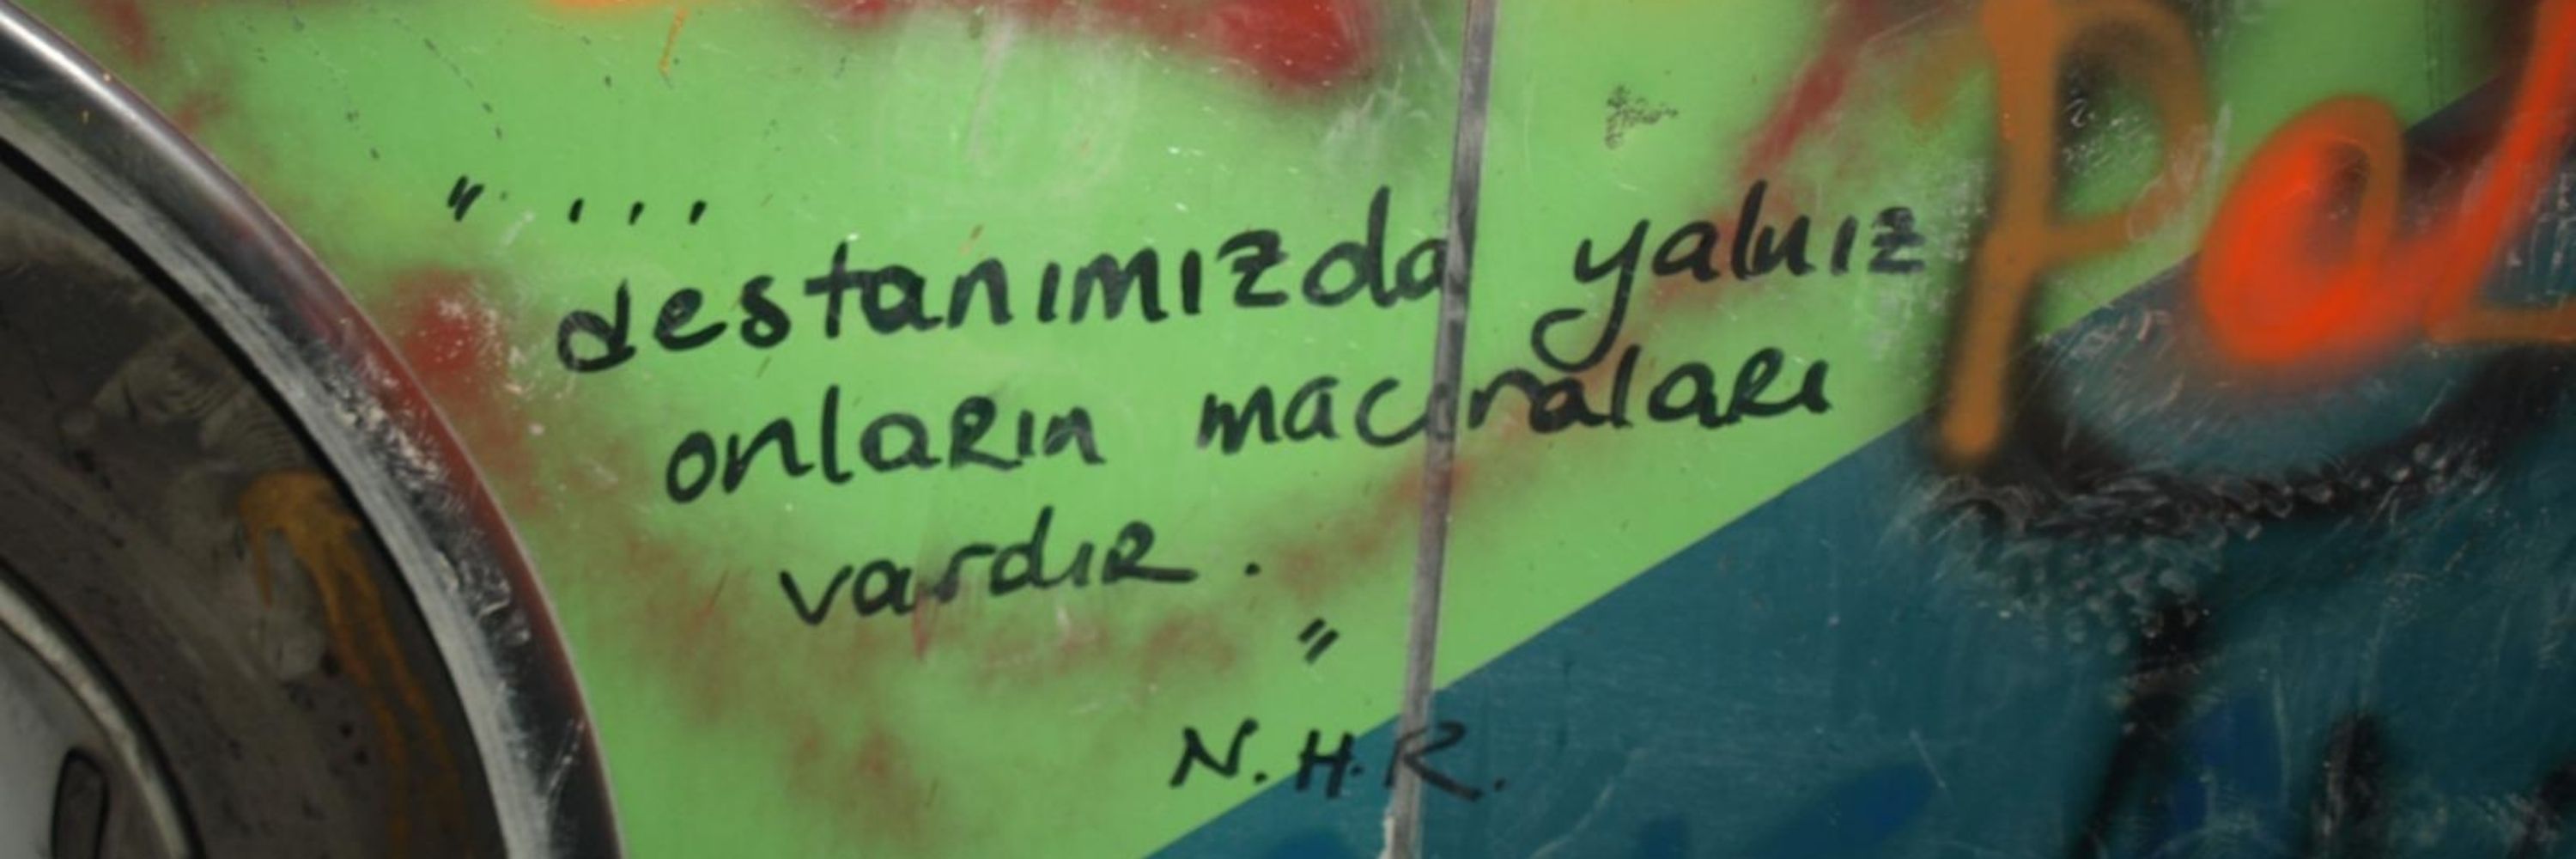 " ...
destanımızda yalnız
onların maceraları
vardır.
"
N.H.R.
Pal